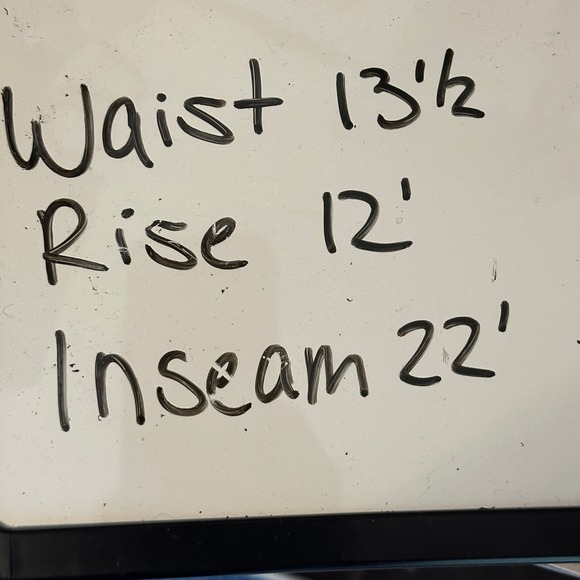 Waist 13 1/2
Rise 12'
Inseam 22'